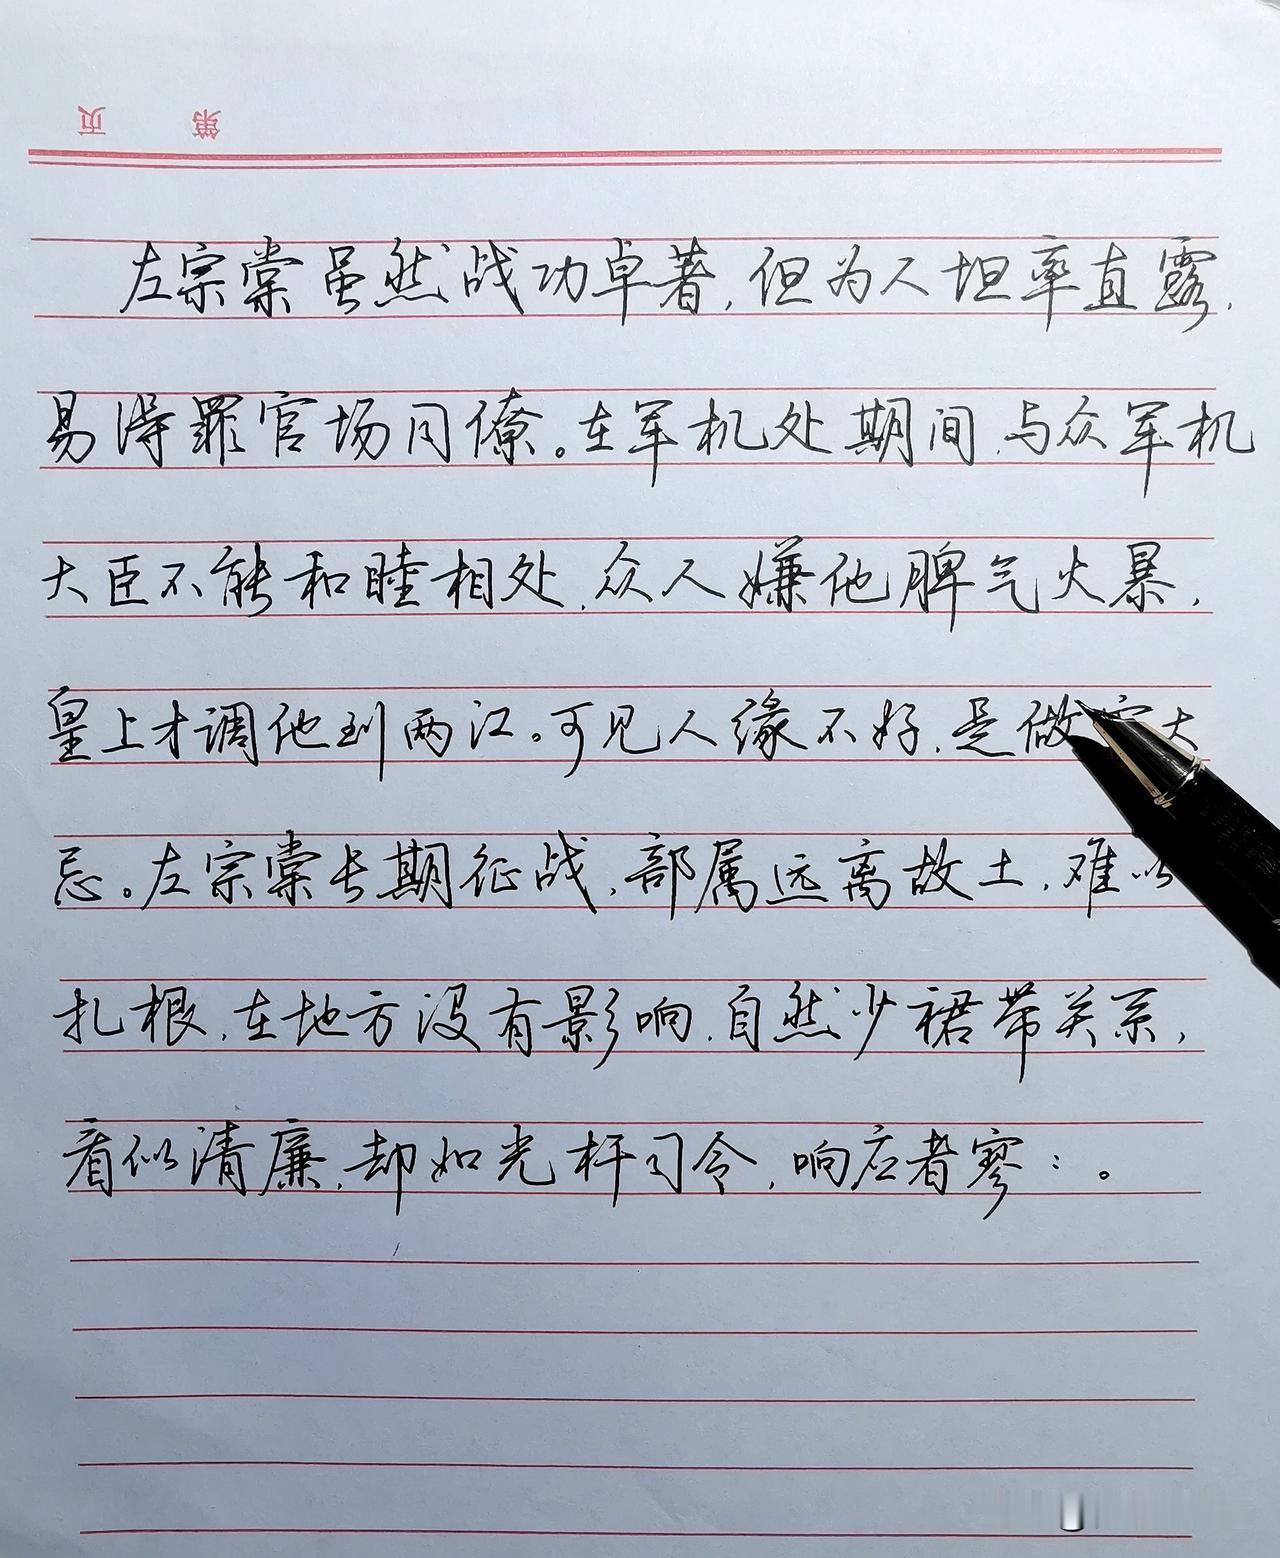 页 第
左宗棠虽然战功卓著,但为人坦率直露,
易得罪官场同僚。在军机处期间,与众军机
大臣不能和睦相处,众人嫌他脾气火暴,
皇上才调他到两江。可见人缘不好,是做官大
忌。左宗棠长期征战,部属远离故土,难以
扎根,在地方没有影响,自然少裙带关系,
看似清廉,却如光杆司令,响应者寥:。